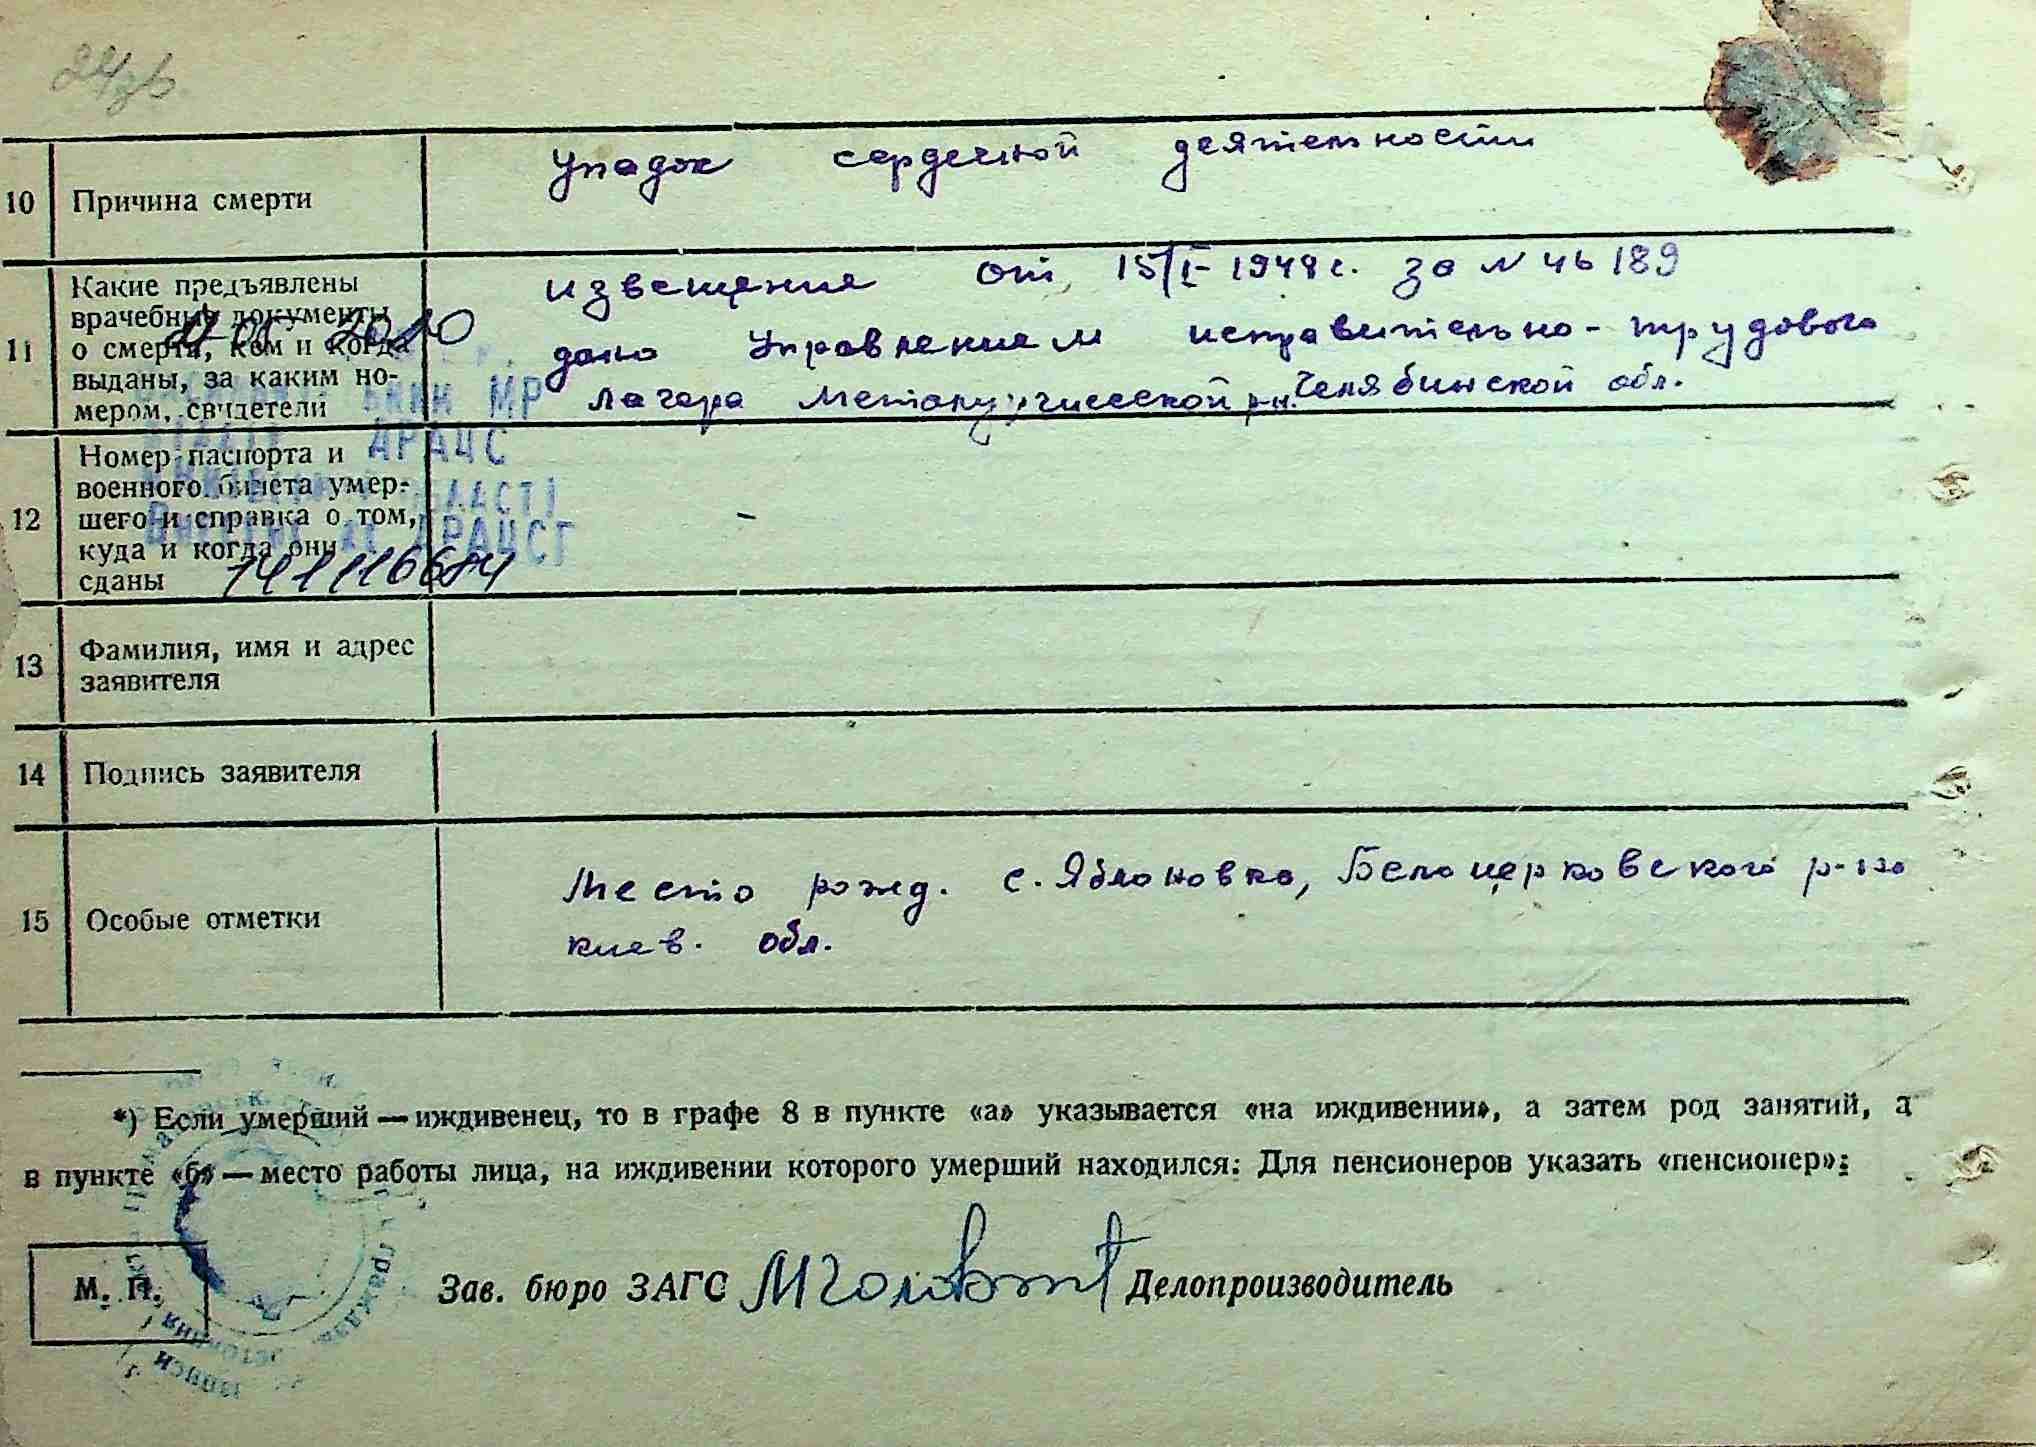 10 Причина смерти Упадок сердечной деятельности
11 Какие предъявлены врачебные документы о смерти, кем и когда выданы, за каким но-мером, свидетели
извещение от 15/I-1948г. за N 46189
дано Управлением исправительно-трудового
лагеря Металлургической р-н. Челябинской обл.
МР
ДРАЦС
ОБЛАСТІ
ДРАЦСГ
12 Номер паспорта и
военного билета умер-
шего и справка о том,
куда и когда они
сданы
-
141116684
13 Фамилия, имя и адрес
заявителя
14 Подпись заявителя
15 Особые отметки
Место рожд. с. Яблоновка, Белоцерковского р-на
киев. обл.
*) Если умерший — иждивенец, то в графе 8 в пункте «а» указывается «на иждивении», а затем род занятий, а
в пункте «б» — место работы лица, на иждивении которого умерший находился: Для пенсионеров указать «пенсионер»:
М. П.
Зав. бюро ЗАГС Делопроизводитель